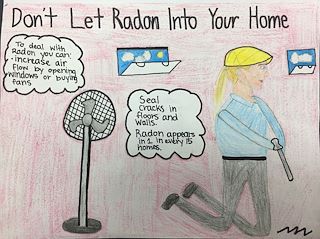 Don't Let Radon Into Your Home
To deal with
Radon you can:
•increase air
flow by opening
windows or buying
fans
Seal
cracks in
floors and
walls.
Radon appears
in 1 in every 15
homes.